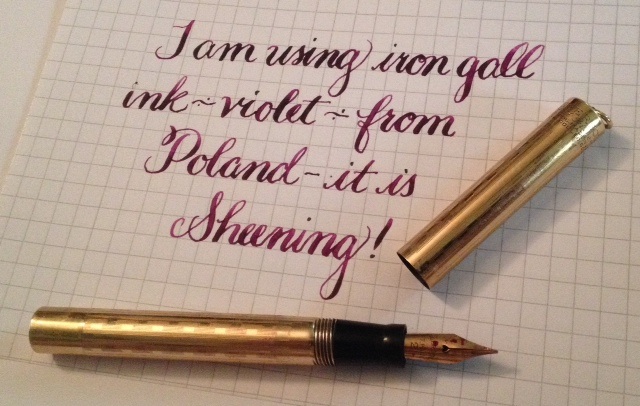 I am using iron gall
ink ~ violet ~ from
Poland - it is
Sheening!